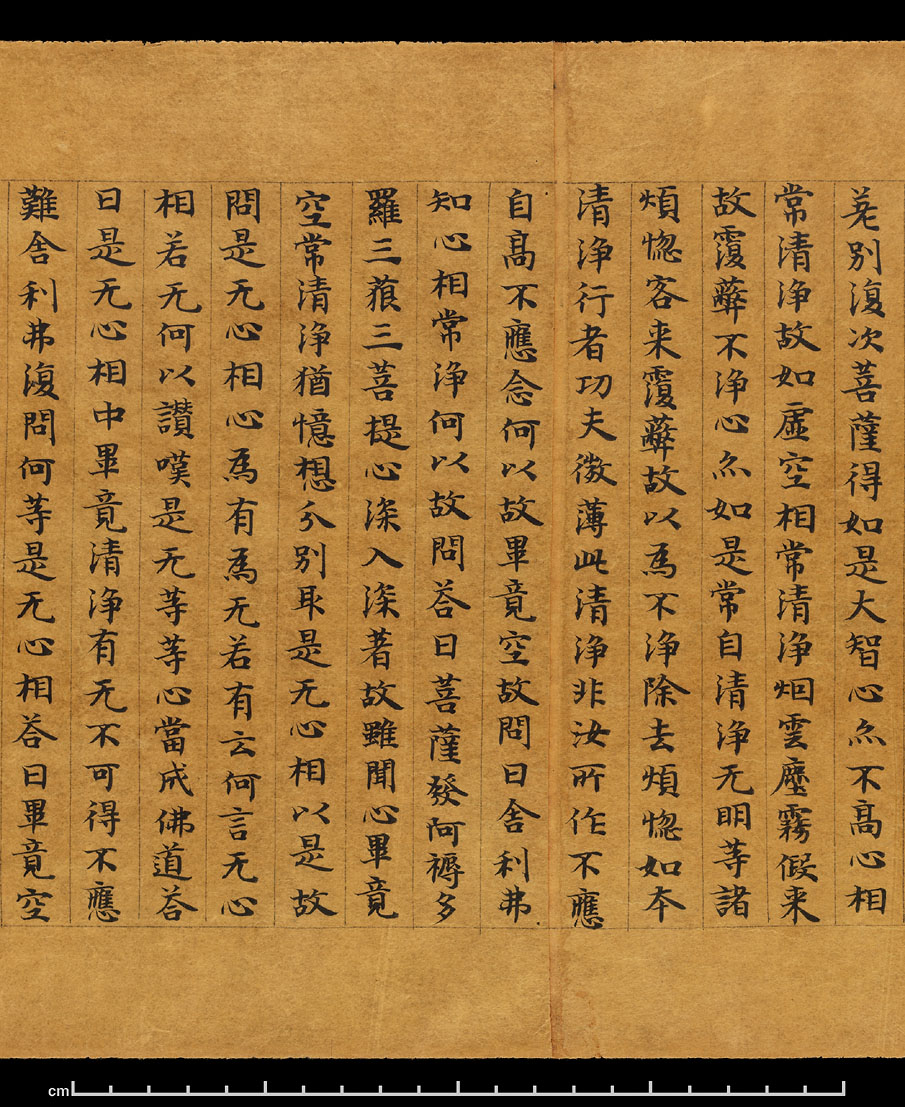 差別復次菩薩得如是大智心亦不高心相
常清淨故如虛空相常清淨烟雲塵霧假来
故覆蔽不淨心亦如是常自清淨无明等諸
煩惚客来覆蔽故以為不淨除去煩惚如夲
清淨行者功夫微薄此清淨非汝所作不應
自高不應念何以故畢竟空故問曰舍利弗
知心相常淨何以故問荅曰菩薩發阿耨多
羅三藐三菩提心深入深著故雖聞心畢竟
空常清淨猶憶想分別取是无心相以是故
問是无心相心為有為无若有云何言无心
相若无何以讃嘆是无等等心當成佛道荅
曰是无心相中畢竟清淨有无不可得不應
難舍利弗復問何等是无心相荅曰畢竟空
cm